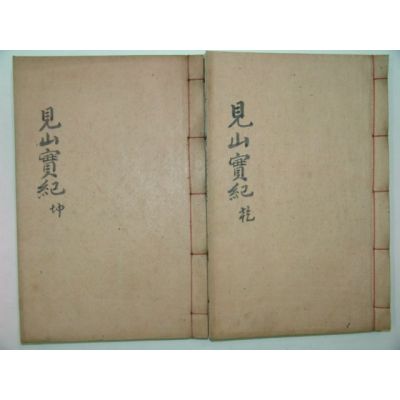 見山寶紀 乾
見山寶紀 坤